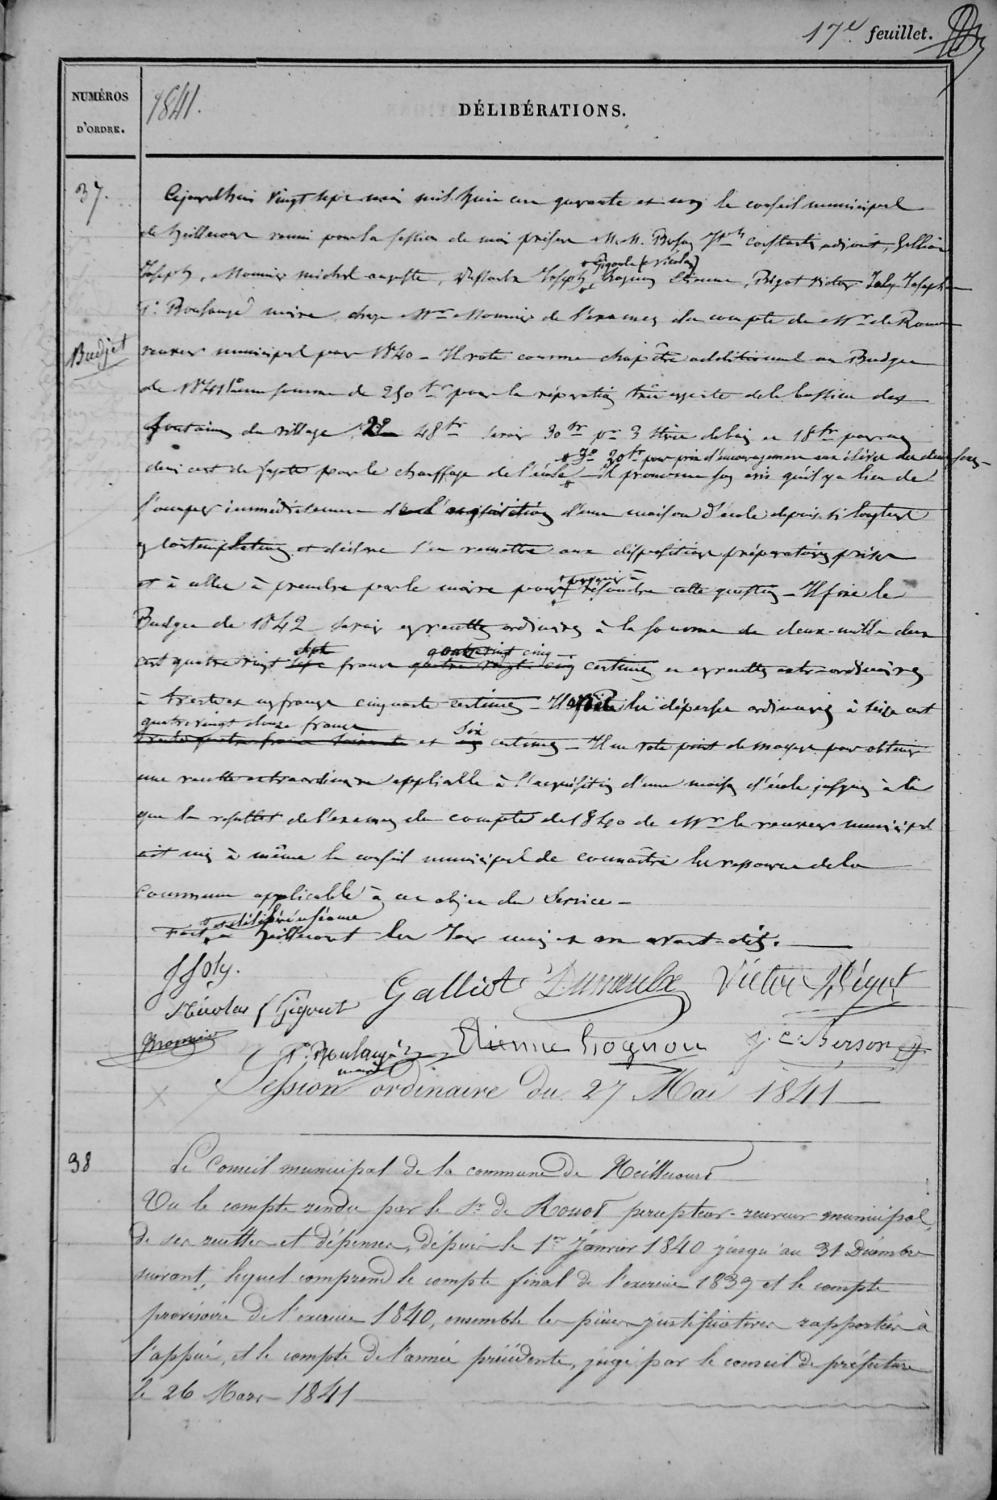 17e feuillet.
NUMÉROS D'ORDRE.
1841.
DÉLIBÉRATIONS.
37.
Cejourd'hui vingt sept mai mil huit cen quarante et un le conseil municipal
de heillecour reuni pour la session de mai présens M.M. Joseph, adjoint,
Joseph, Mounier michel auguste, Joseph + Gigoute (Nicolas) hognon Etienne, Bégot victor Joly Joseph
P. Boulangé maire, charge Mr Mounier de l'examen du compte de Mr de Rouot
Budjet
receveur municipal pour 1840 - Il vote comme chapitre additionnel au Budget
de 1841 1o une somme de 250 fr pour la réparation très urgente de la bassin des
fontaines du village, 2o 48 fr savoir 30 fr pr 3 stères de bois et 18 fr pour un
demi cent de fagots pour le chauffage de l'école + 3o 20 fr pour prix d'encouragement aux élèves des deux sexes -
+ Il prononce son avis qu'il y a lieu de
s'occuper immédiatement de l'acquisition d'une maison d'école depuis si longtems
en contemplation et déclare s'en remettre aux dispositions préparatoires prises
et à aller à prendre par le maire pour + parvenir à résoudre cette question - Il fixe le
Budget de 1842 savoir en recettes ordinaires à la somme de deux-mille deux
cent quatre vingt sept francs quatre vingt cinq centimes en recettes extra-ordinaires
à trente un francs cinquante centimes - Il fixe les dépenses ordinaires à seize cent
quatre vingt douze francs et six centimes - Il ne vote point de moyens pour obtenir
une recette extraordinaire applicable à l'acquisition d'une maison d'école jusqu'à là
que le résultat de l'examen du compte de 1840 de Mr le receveur municipal
ait mis à même le conseil municipal de connaître les ressources de la
commune applicable à cet objet de service -
Fait + et délibéré en séance à heillecourt les Jour mois et an avant-dits.
J Joly.
Nicolas Gigout
Galliot
Victor Bégot
Mounier
P. Boulangé
maire
Etienne hognon
J. C. Berson
Session ordinaire du 27 Mai 1841
38
Le Conseil municipal de la commune de Heillecourt
Vu le compte rendu par le Sr de Rouot percepteur-receveur municipal,
de ses recettes et dépenses, depuis le 1er Janvier 1840 jusqu'au 31 Décembre
suivant, lequel comprend le compte final de l'exercice 1839 et le compte
provisoire de l'exercice 1840, ensemble les pièces justificatives rapportées à
l'appui, et le compte de l'année précédente, jugé par le conseil de préfecture
le 26 Mars 1841